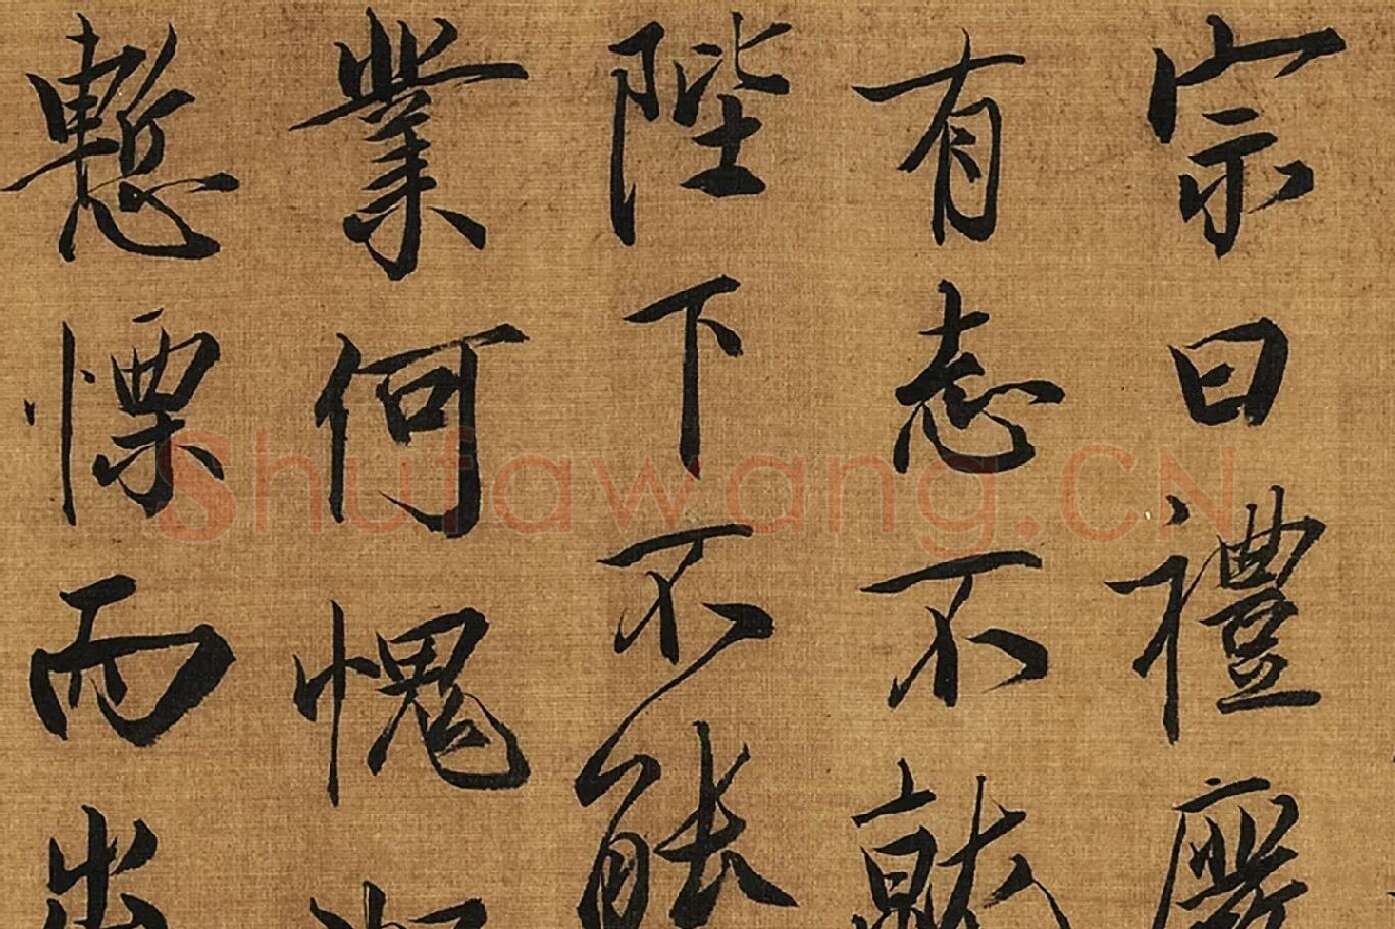 宗曰禮
有志不就
陛下不能
業何愧
慙慄而出
Shufawang.CN